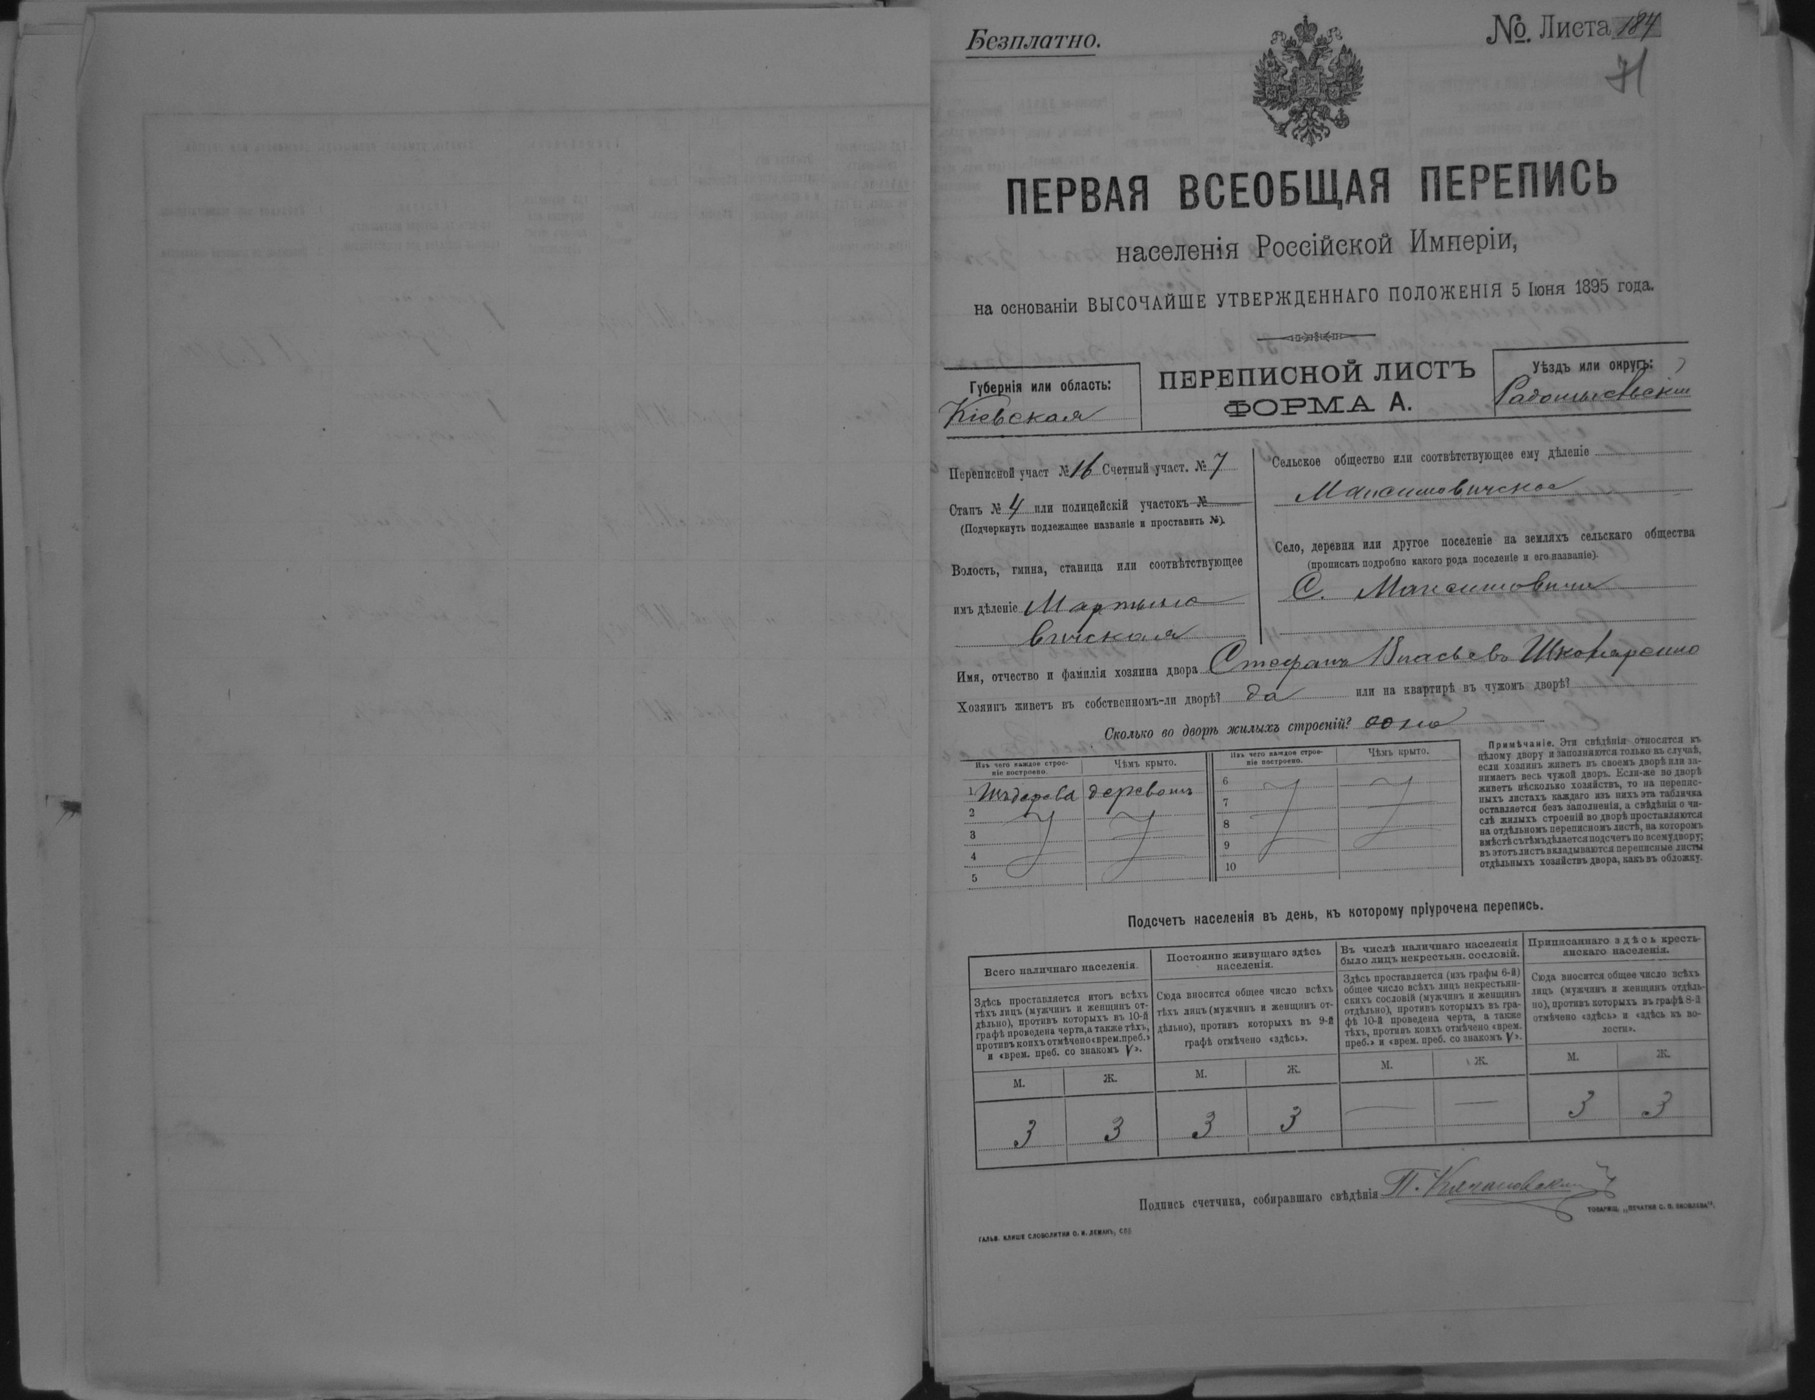 Безплатно.
№. Листа 184
71
ПЕРВАЯ ВСЕОБЩАЯ ПЕРЕПИСЬ
населенія Россійской Имперіи,
на основаніи ВЫСОЧАЙШЕ УТВЕРЖДЕННАГО ПОЛОЖЕНІЯ 5 Іюня 1895 года.
Губернія или область:
Кіевская
ПЕРЕПИСНОЙ ЛИСТЪ
ФОРМА А.
Уѣздъ или округъ:
Радомысльскій
Переписной участ № 16 Счетный участ. № 7
Станъ № 4 или полицейскій участокъ №
(Подчеркнуть подлежащее названіе и проставить №).
Волость, гмина, станица или соотвѣтствующее
имъ дѣленіе Мартыно
вичская
Сельское общество или соотвѣтствующее ему дѣленіе
Максимовичское
Село, деревня или другое поселеніе на земляхъ сельскаго общества
(прописать подробно какого рода поселеніе и его названіе).
С. Максимовичи
Имя, отчество и фамилія хозяина двора Стефанъ Власьевъ
Хозяинъ живетъ въ собственномъ-ли дворѣ? да или на квартирѣ въ чужомъ дворѣ?
Сколько во дворѣ жилыхъ строеній? одно
Изъ чего каждое строе-
ніе построено.
Чѣмъ крыто.
Изъ чего каждое строе-
ніе построено.
Чѣмъ крыто.
1 Изъ дерева деревомъ
2
3
4
5
6
7
8
9
10
Примѣчаніе. Эти свѣдѣнія относятся къ
цѣлому двору и заполняются только въ случаѣ,
если хозяинъ живетъ въ своемъ дворѣ или за-
нимаетъ весь чужой дворъ. Если-же во дворѣ
живетъ нѣсколько хозяйствъ, то на перепис-
ныхъ листахъ каждаго изъ нихъ эта табличка
оставляется безъ заполненія, а свѣдѣнія о чи-
слѣ жилыхъ строеній во дворѣ проставляются
на отдѣльномъ переписномъ листѣ, на которомъ
вмѣстѣ съ тѣмъ дѣлается подсчетъ по всему двору;
въ этотъ листъ вкладываются переписные листы
отдѣльныхъ хозяйствъ двора, какъ въ обложку.
Подсчетъ населенія въ день, къ которому пріурочена перепись.
Всего наличнаго населенія.
Здѣсь проставляется итогъ всѣхъ
тѣхъ лицъ (мужчинъ и женщинъ от-
дѣльно), противъ которыхъ въ 10-й
графѣ проведена черта, а также тѣхъ,
противъ коихъ отмѣчено «врем. преб.»
и «врем. преб. со знакомъ V».
Постоянно живущаго здѣсь
населенія.
Сюда вносится общее число всѣхъ
тѣхъ лицъ (мужчинъ и женщинъ от-
дѣльно), противъ которыхъ въ 9-й
графѣ отмѣчено «здѣсь».
Въ числѣ наличнаго населенія
было лицъ некрестьян. сословій.
Здѣсь проставляется (изъ графы 6-й)
общее число всѣхъ лицъ некрестьян-
скихъ сословій (мужчинъ и женщинъ
отдѣльно), противъ которыхъ въ гра-
фѣ 10-й проведена черта, а также
тѣхъ, противъ коихъ отмѣчено «врем.
преб.» и «врем. преб. со знакомъ V».
Приписаннаго здѣсь кресть-
янскаго населенія.
Сюда вносится общее число всѣхъ
лицъ (мужчинъ и женщинъ отдѣль-
но), противъ которыхъ въ графѣ 8-й
отмѣчено «здѣсь» и «здѣсь въ во-
лости».
М. Ж. М. Ж. М. Ж. М. Ж.
3 3 3 3 — — 3 3
Подпись счетчика, собиравшаго свѣдѣнія П.
ГАЛЬВ. КЛИШЕ СЛОВОЛИТНИ О. И. ЛЕМАНЪ, СПБ
ТОВАРИЩ. „ПЕЧАТНЯ С. П. ЯКОВЛЕВА".